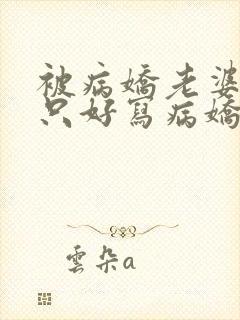 被病嬌老婆
只好寫病嬌
雲朵a